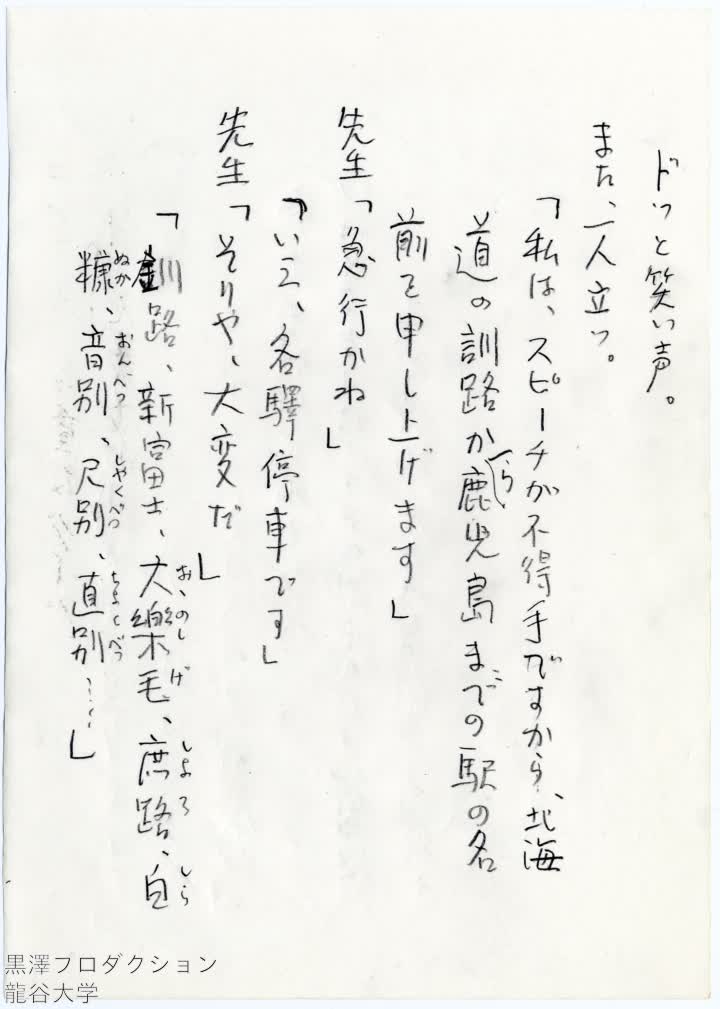 ドッと笑い声。
また、一人立つ。
「私は、スピーチが不得手ですから、北海
道の訓路から鹿児島までの駅の名
前を申し上げます」
先生「急行かね」
「いえ、各驛停車です」
先生「そりや、大変だ」
「釧路、新富士、大樂毛、庶路、白
おゝのしげ
しよろ
しら
糠、音別、尺別、直別……」
ぬか
おんべつ
しやくべつ
ちよくべつ
黒澤プロダクション
龍谷大学